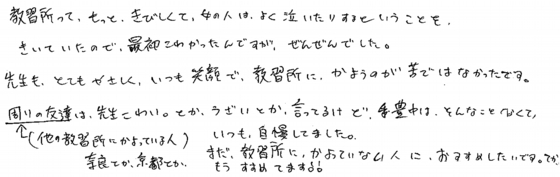 教習所って、もっと、きびしくて、女の人は、よく泣いたりするということを、
きいていたので、最初こわかったんですが、ぜんぜんでした。
先生も、とてもやさしく、いつも笑顔で、教習所に、かようのが苦ではなかったです。
周りの友達は、先生こわい。とか、うざいとか、言ってるけど、香豊中は、そんなことなくて、
↑(他の教習所にかよっている人) いつも、自慢してました。
奈良とか、京都とか、 まだ、教習所に、かよっていない人に、おすすめしたいです。てか、
もう すすめてます!!